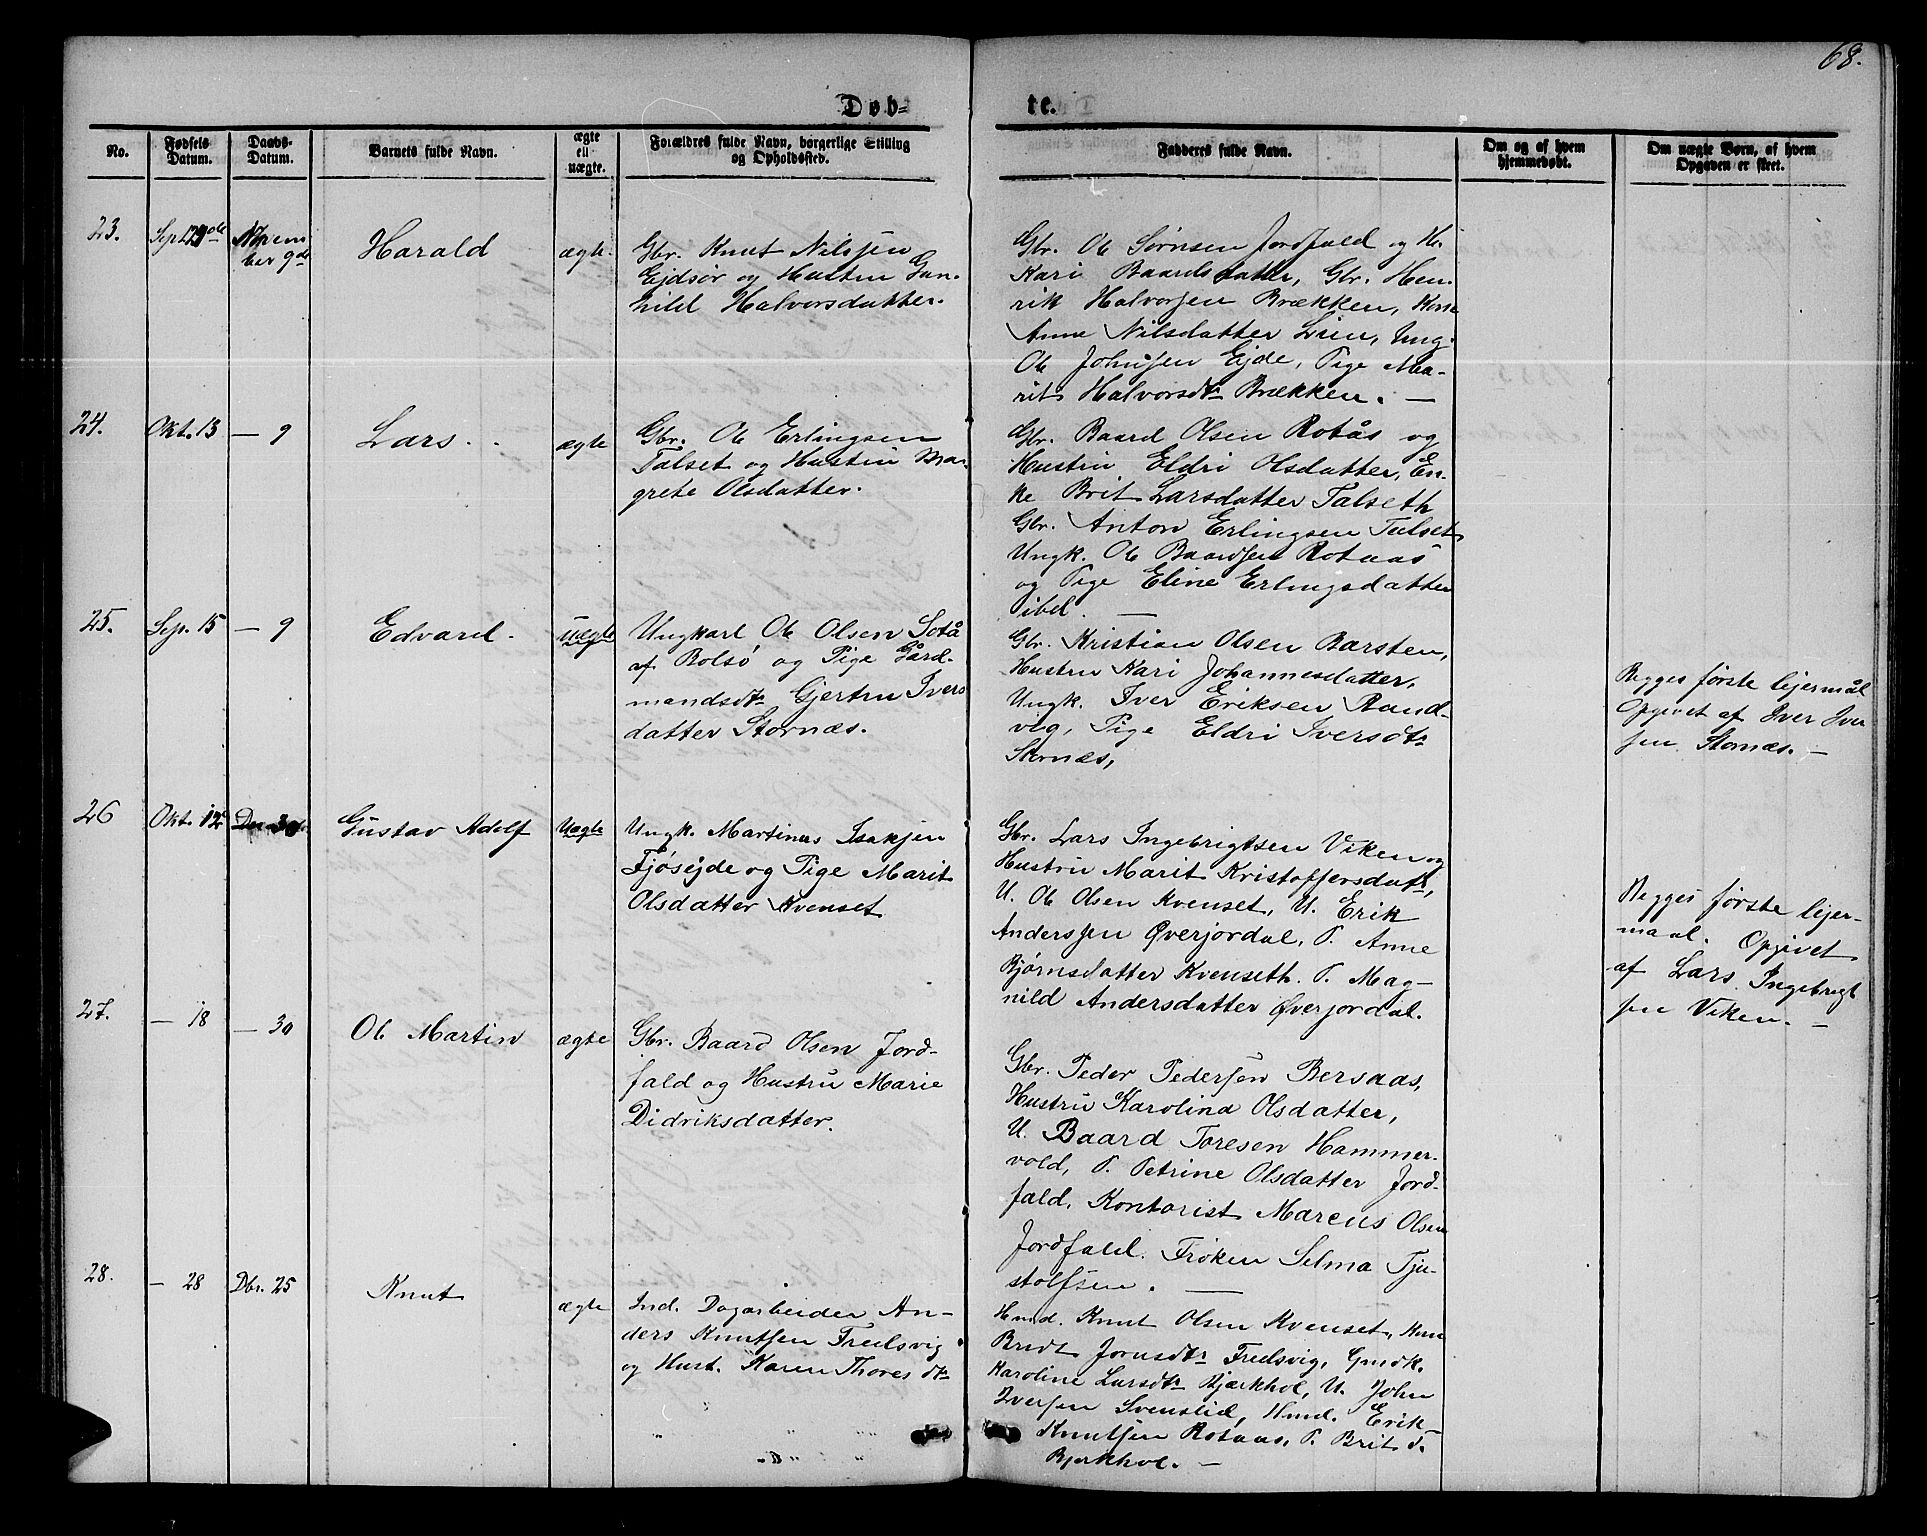 68.
Døb-
te.
No.
Fødsels Datum.
Daabs- Datum.
Barnets fulde Navn.
ægte ell uægte.
Forældres fulde Navn, borgerlige Stilling og Opholdssted.
Faddernes fulde Navn.
Om og af hvem hjemmedøbt.
Om uægte Børn, af hvem Opgaven er skeet.
23.
Novem
ber 9de
Harald
ægte.
Gbr. Knut Nilssen
Ejdsør og Hustru Gun-
hild Halvorsdatter.
Gbr. Ole Sørnsen Jordfald og H.
Kari Baardsdatter, Gbr. Hen-
rik Halvorsen Brækken, Kone
Anne Nilsdatter Lien, Ung.
Ole Johnsen Ejde, Pige Ma-
rit Halvorsdtr Brækken. —
24.
Okt. 13
— 9
Lars.
ægte
Gbr. Ole Erlingsen
Talset og Hustru Mar-
grete Olsdatter.
Gbr. Baard Olsen Rotås og
Hustru Eldri Olsdatter, En-
ke Brit Larsdatter Talseth
Gbr. Anton Erlingsen Talset
Ungk. Ole Baardsen Rotaas
og Pige Eline Erlingsdatter
ibd. —
25.
Sep. 15
— 9
Edvard.
uægte
Ungkarl Ole Olsen Sotå
af Bolsø og Pige Gård-
mandsdtr Gjertru Ivers
datter Stornæs.
Gbr. Kristian Olsen Barsten,
Hustru Kari Johannesdatter,
Ungk. Iver Eriksen Rand-
vig, Pige Eldri Iversdtr
Stornæs,
Begges første lejermål
Opgivet af Iver Iver
sen Stornæs. —
26
Okt. 12
30
Gustav Adolf
Uægte
Ungk. Martinus Isaksen
Fjøsejde og Pige Marit
Olsdatter Kvenset
Gbr. Lars Ingebrigtsen Viken og
Hustru Marit Kristoffersdatr,
U. Ole Olsen Kvenset, U. Erik
Anderssen Øverjordal, P. Anne
Bjørnsdatter Kvenseth. P. Mag-
nild Andersdatter Øverjordal.
Begges første lejer-
maal. Opgivet
af Lars Ingebrigt
sen Viken. —
27.
— 18
— 30
Ole Martin
ægte
Gbr. Baard Olsen Jord-
fald og Hustru Marie
Didriksdatter.
Gbr. Peder Pedersen Bersaas,
Hustru Karolina Olsdatter,
U. Baard Toresen Hammer-
vold, P. Petrine Olsdatter Jord-
fald, Kontorist Marcus Olsen
Jordfald. Frøken Selma Tju-
stolfsen. —
28.
— 28
Dbr. 25
Knut
ægte
Ind. Dagarbeider An-
ders Knutsen Fredsvig
og Hust. Karen Thoresdtr
Hmd. Knut Olsen Kvenset, Kone
Brit Fredsvig, Gmdk.
Karoline Larsdtr Bjærkhol, U. John
Iversen Svenslid, Hmd. Erik
Knutsen Rotaas, P. Brit
Bjerkhol. —